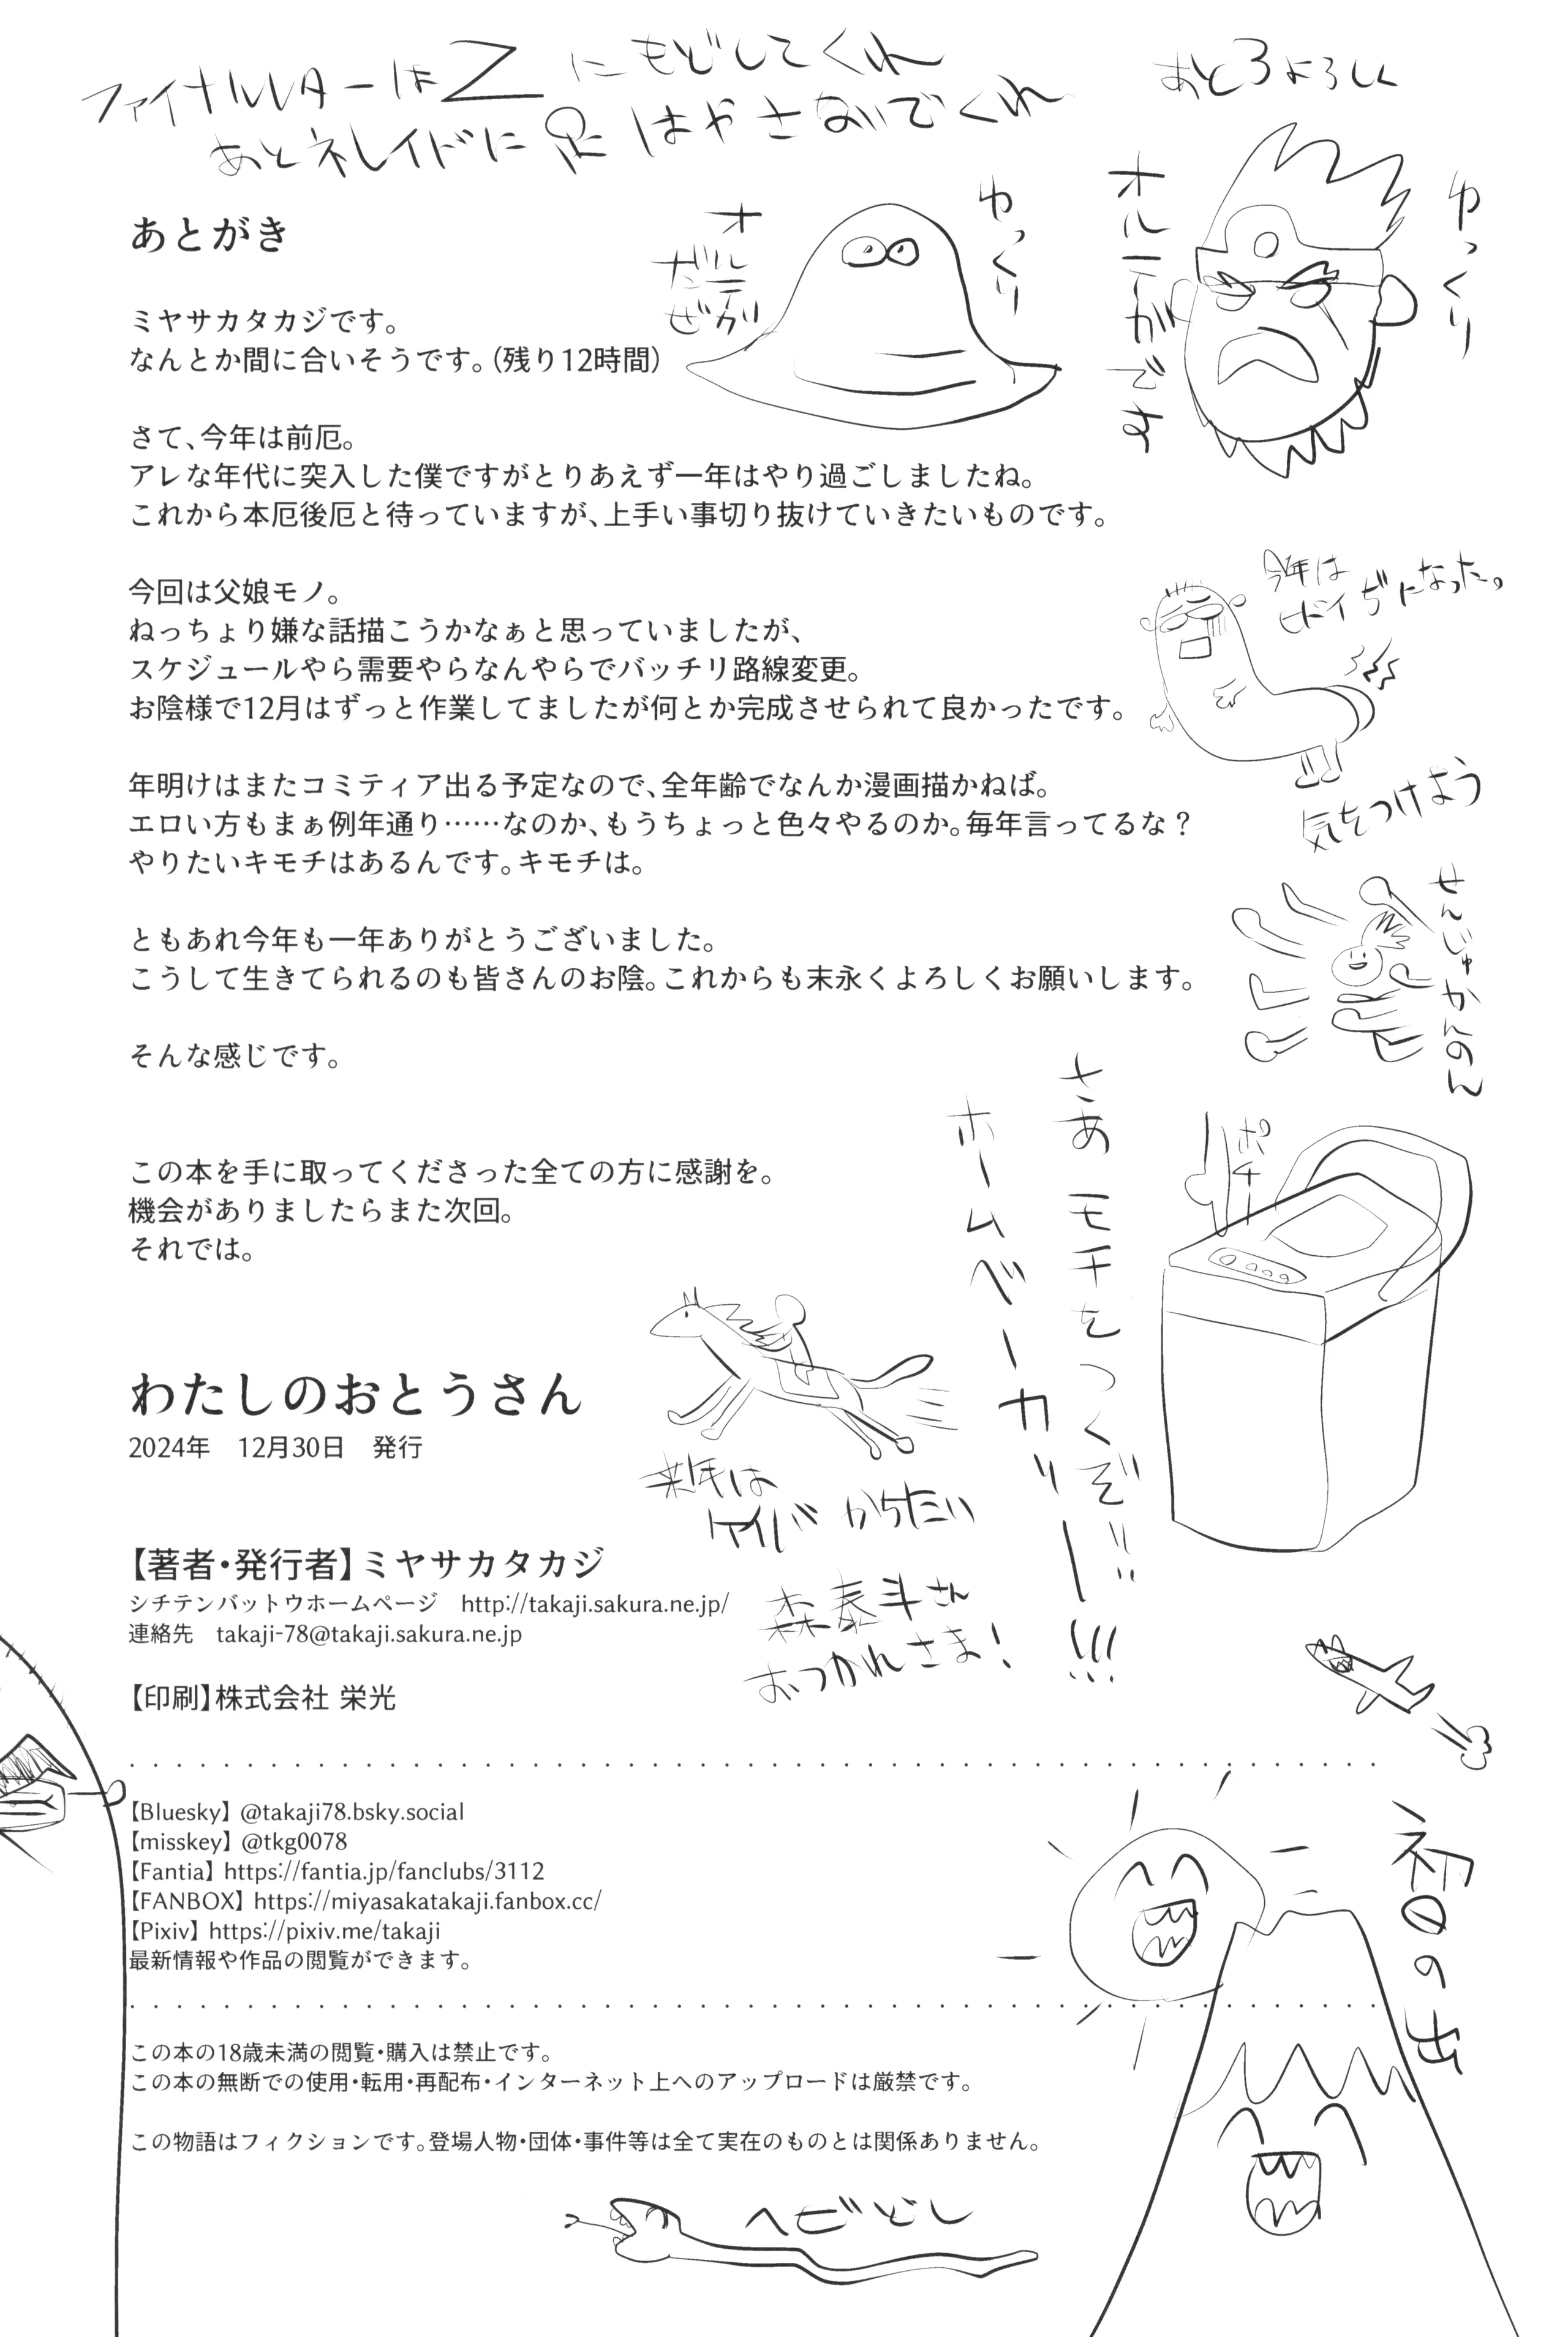 ファイナルレターはZにもどしてくれ
あとネレイドに足はやさないでくれ
あと3よろしく
ゆっくり
オルテガだぜ
ゆっくり
オルテガです
あとがき
ミヤサカタカジです。
なんとか間に合いそうです。（残り12時間）
さて、今年は前厄。
アレな年代に突入した僕ですがとりあえず一年はやり過ごしましたね。
これから本厄後厄と待っていますが、上手い事切り抜けていきたいものです。
今年は
ヒドイぢになった。
気をつけよう
今回は父娘モノ。
ねっちょり嫌な話描こうかなぁと思っていましたが、
スケジュールやら需要やらなんやらでバッチリ路線変更。
お陰様で12月はずっと作業してましたが何とか完成させられて良かったです。
年明けはまたコミティア出る予定なので、全年齢でなんか漫画描かねば。
エロい方もまぁ例年通り……なのか、もうちょっと色々やるのか。毎年言ってるな？
やりたいキモチはあるんです。キモチは。
せんじゅかんのん
ともあれ今年も一年ありがとうございました。
こうして生きてられるのも皆さんのお陰。これからも末永くよろしくお願いします。
そんな感じです。
さあモチをつくぞ!!
ホームベーカリー!!!
ポチー
この本を手に取ってくださった全ての方に感謝を。
機会がありましたらまた次回。
それでは。
わたしのおとうさん
2024年　12月30日　発行
来年は
ケイバかちたい
森泰斗さん
おつかれさま！
【著者・発行者】ミヤサカタカジ
シチテンバットウホームページ　http://takaji.sakura.ne.jp/
連絡先　takaji-78@takaji.sakura.ne.jp
【印刷】株式会社 栄光
【Bluesky】@takaji78.bsky.social
【misskey】@tkg0078
【Fantia】https://fantia.jp/fanclubs/3112
【FANBOX】https://miyasakatakaji.fanbox.cc/
【Pixiv】https://pixiv.me/takaji
最新情報や作品の閲覧ができます。
初日の出
この本の18歳未満の閲覧・購入は禁止です。
この本の無断での使用・転用・再配布・インターネット上へのアップロードは厳禁です。
この物語はフィクションです。登場人物・団体・事件等は全て実在のものとは関係ありません。
ヘビどし